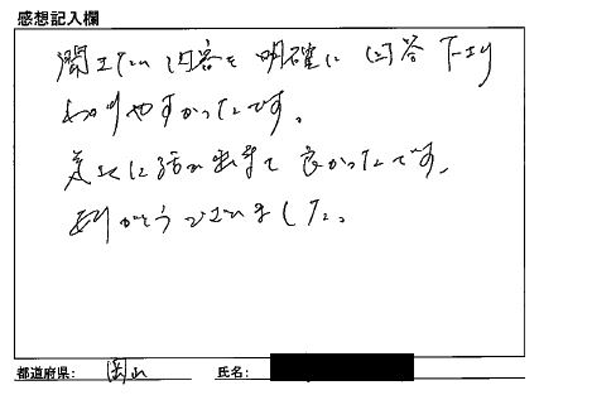 感想記入欄
聞きたい内容を明確に回答下さり
わかりやすかったです。
に話が出来て良かったです。
ありがとうございました。
都道府県: 岡山
氏名: